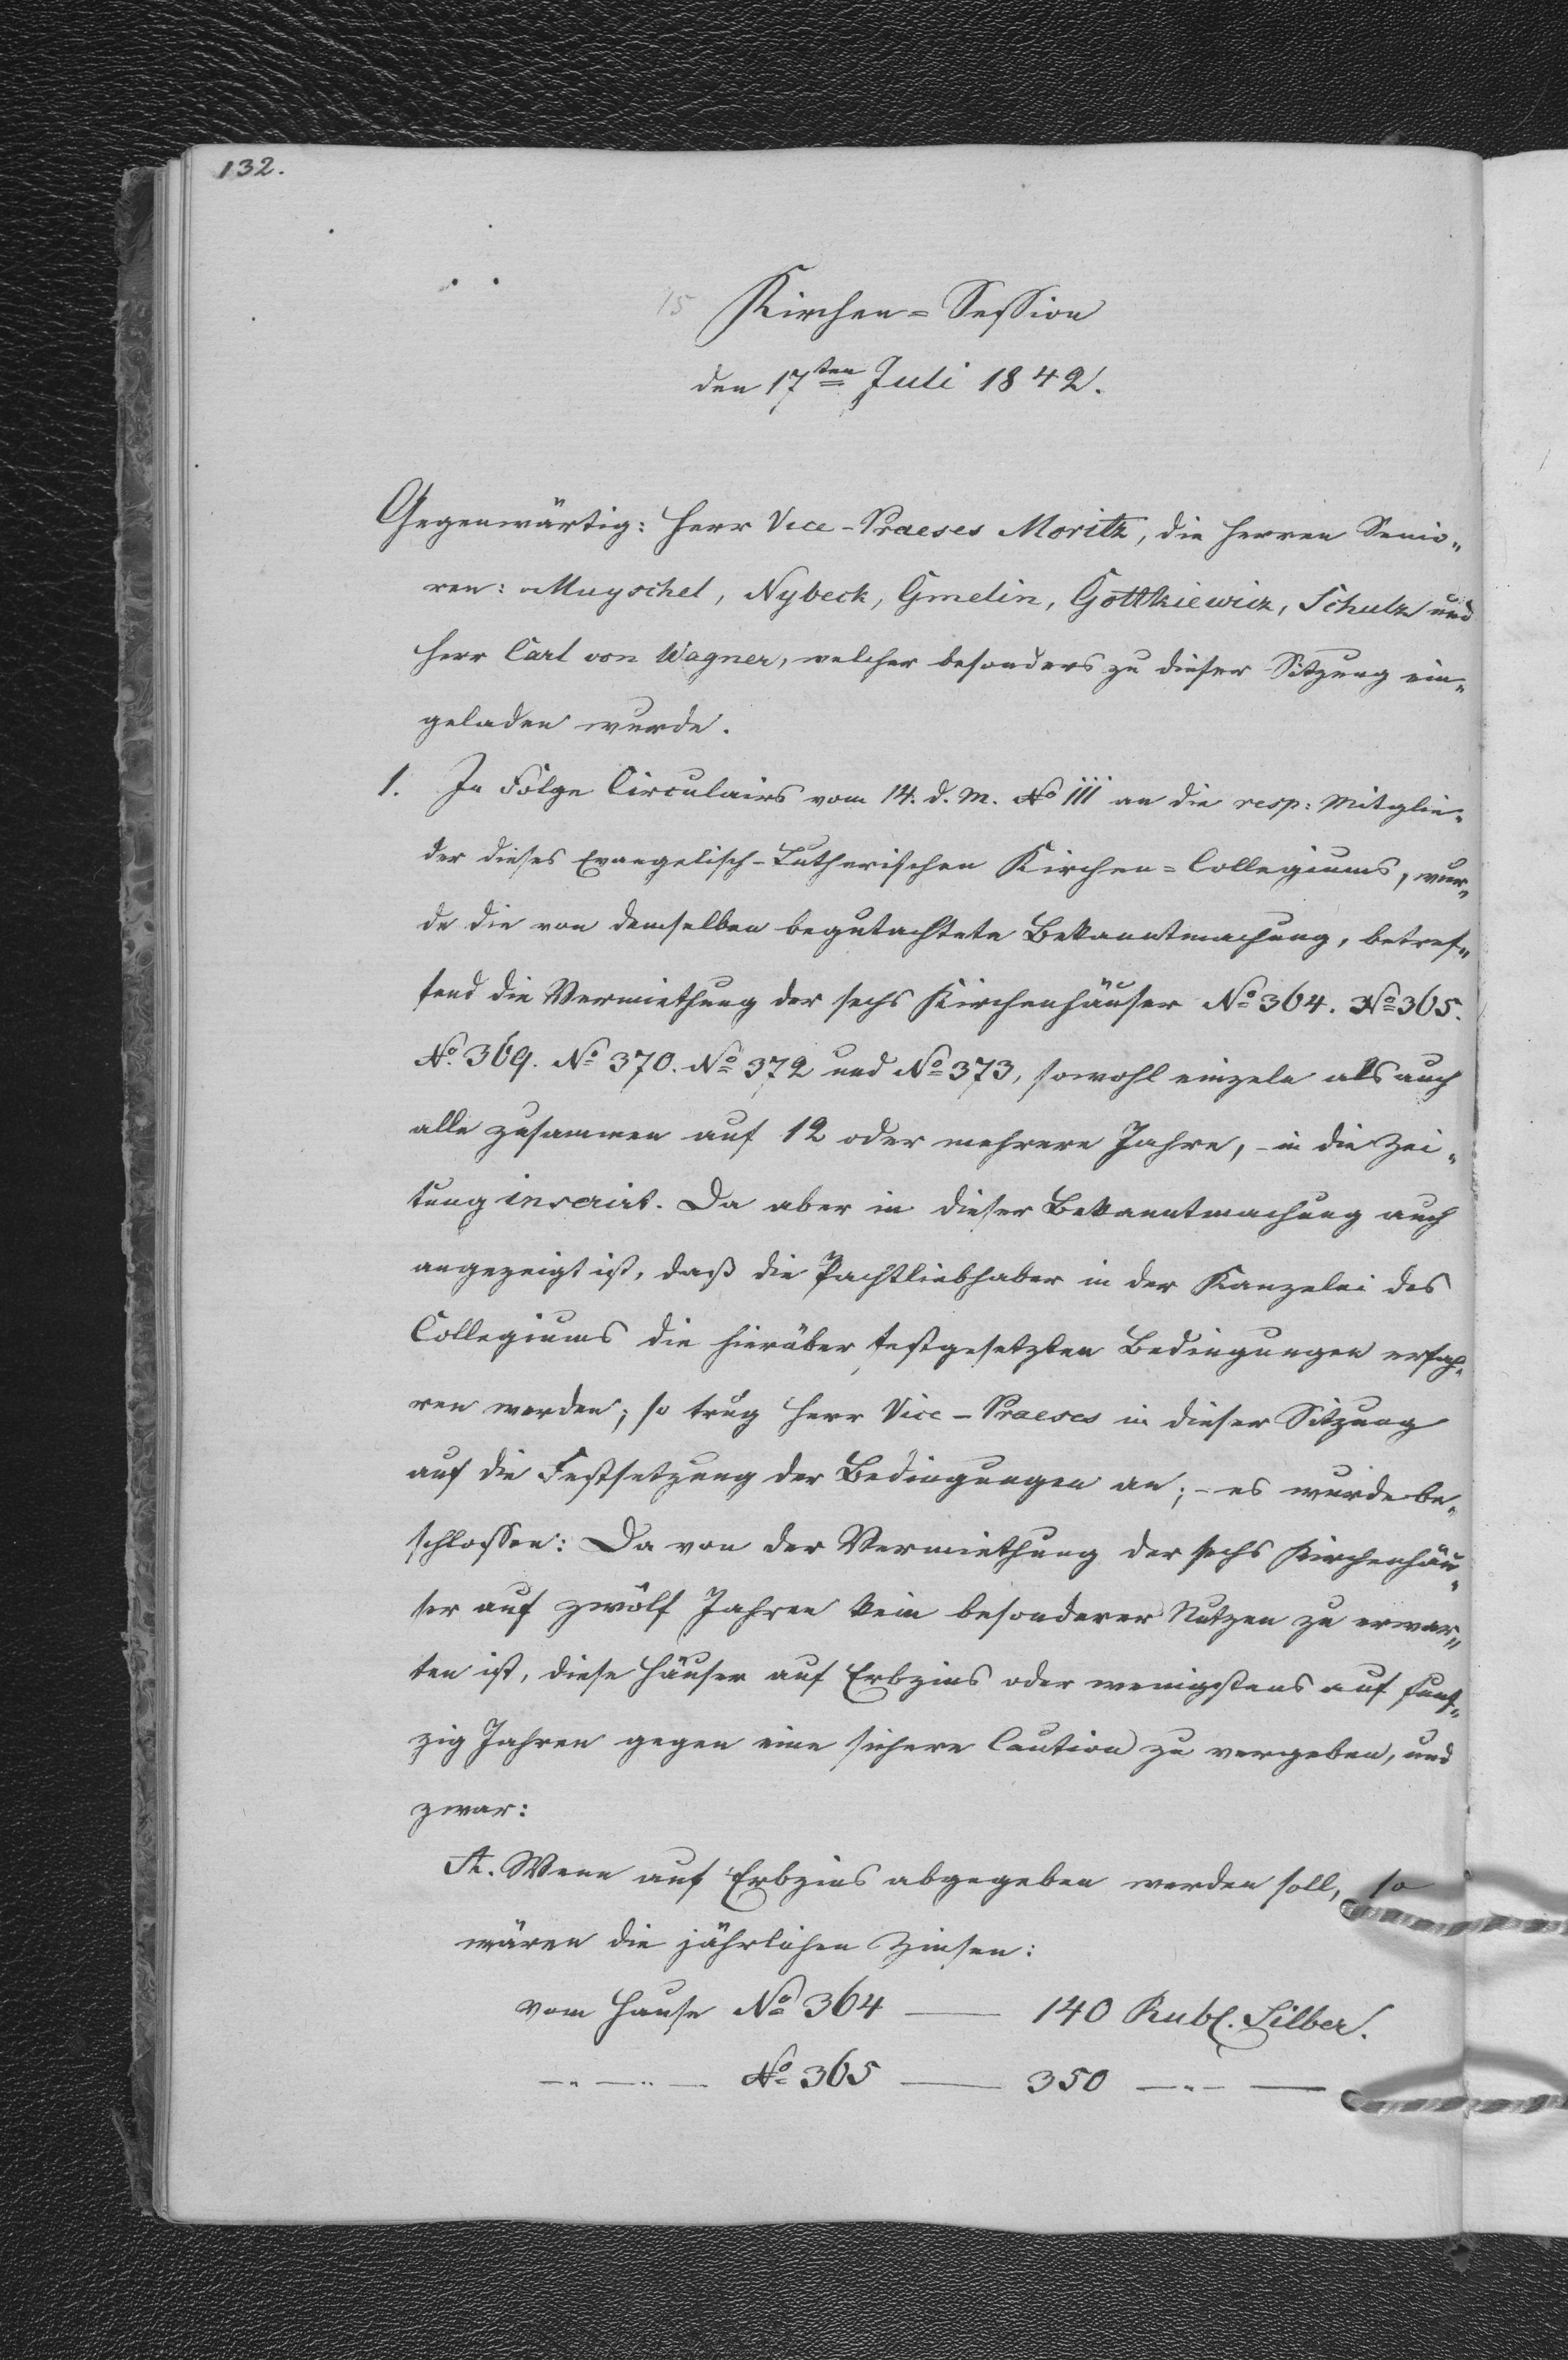 132.
15 Kirchen-Session
den 17ten Juli 1842.
Gegenwärtig: Herr Vice-Praeses Moritz, die Herren Senio-
ren: Muyschel, Nybeck, Gmelin, Gottkiewicz, Schulz und
Herr Carl von Wagner, welcher besonders zu dieser Sitzung ein-
geladen wurde.
1. In Folge Circulairs vom 14. d. M. No 111 an die resp: Mitglie-
der dieses Evangelisch-Lutherischen Kirchen-Collegiums, wur-
de die von demselben begutachtete Bekanntmachung, betref-
fend die Vermiethung der sechs Kirchenhäuser No 364. No 365.
No 369. No 370. No 372 und No 373, sowohl einzeln als auch
alle zusammen auf 12 oder mehrere Jahre, - in die Zei-
tung inserirt. Da aber in dieser Bekanntmachung auch
angezeigt ist, daß die Pachtliebhaber in der Kanzelei des
Collegiums die hierüber festgesetzten Bedingungen erfah-
ren werden; so trug Herr Vice-Praeses in dieser Sitzung
auf die Festsetzung der Bedingungen an; - es wurde be-
schlossen: Da von der Vermiethung der sechs Kirchenhäu-
ser auf zwölf Jahren kein besonderer Nutzen zu erwar-
ten ist, diese Häuser auf Erbzins oder wenigstens auf funf-
zig Jahren gegen eine sichere Caution zu vergeben, und
zwar:
A. Wenn auf Erbzins abgegeben werden soll, so
wären die jährlichen Zinsen:
vom Hause No 364 — 140 Rubl. Silber.
—„—„— No 365 — 350 —„— —